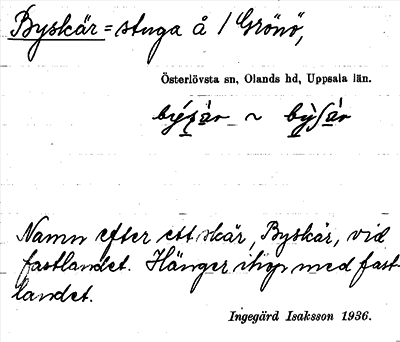 Byskär = stuga å / Grönö,
Österlövsta sn, Olands hd, Uppsala län.
~
Namn efter ett skär, Byskär, vid
fastlandet. Hänger ihop med fast-
landet.
Ingegärd Isaksson 1936.